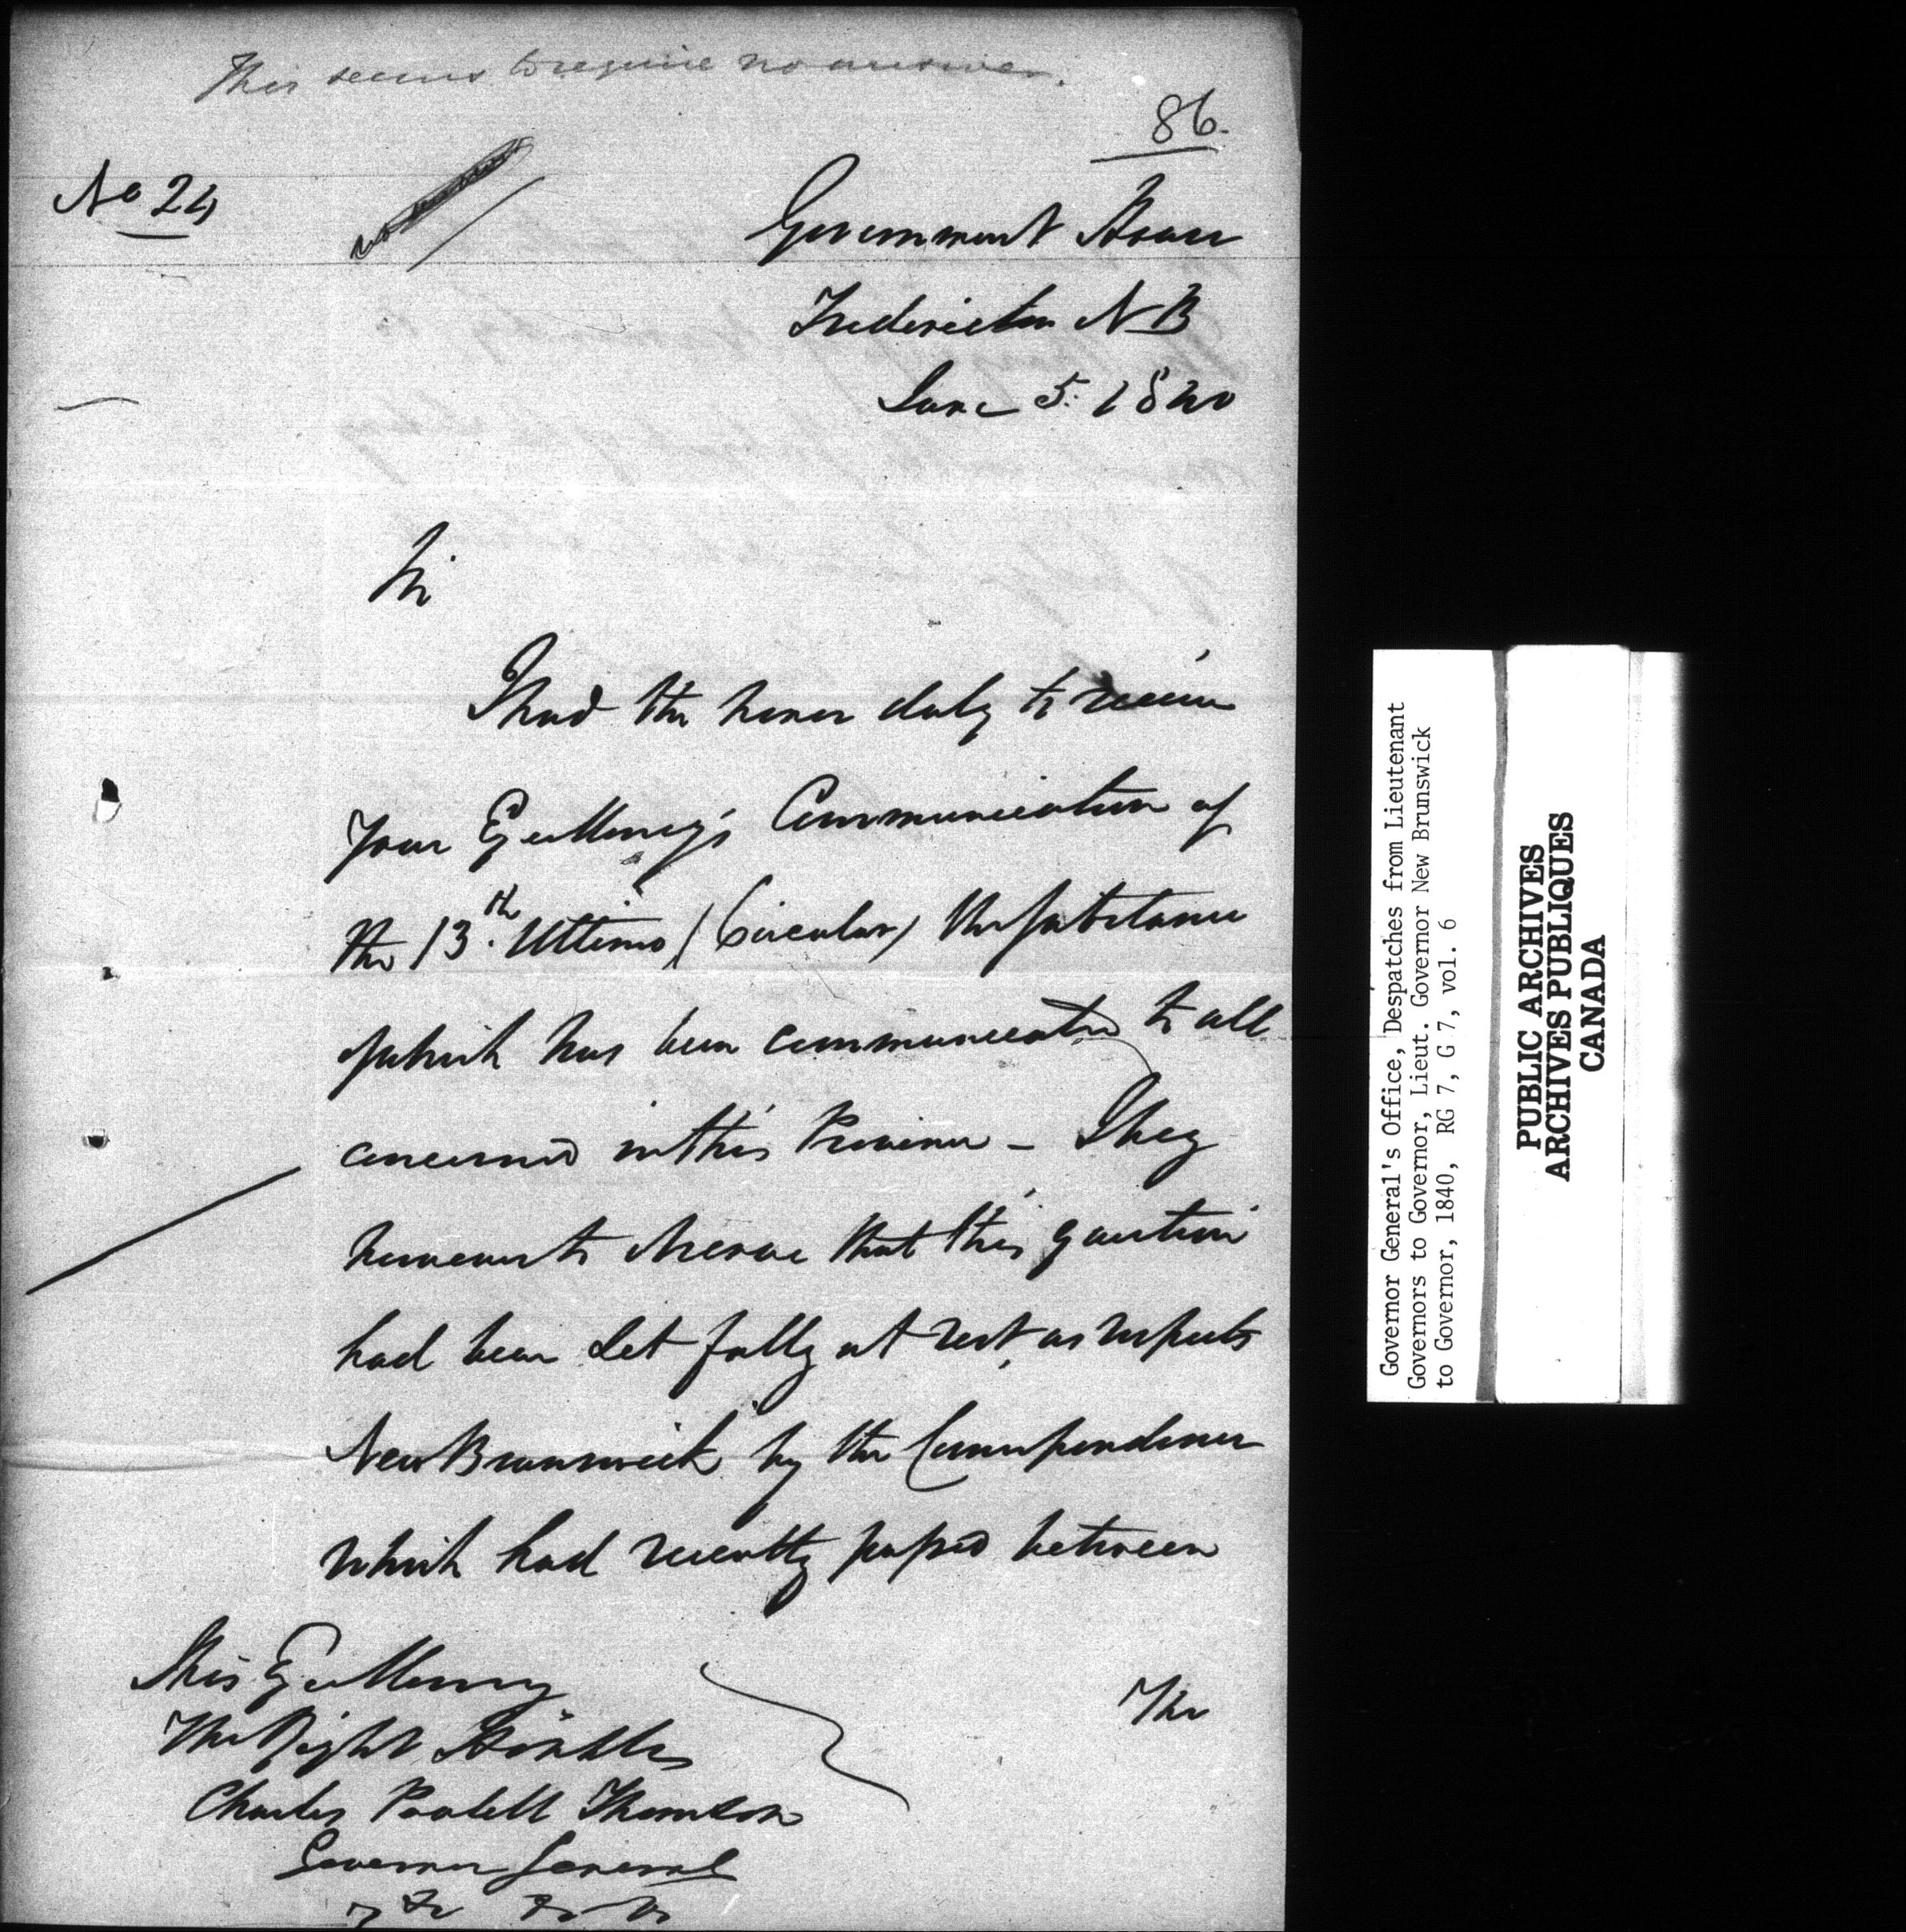 This seems to require no answer.
86.
No 24
Government House
Fredericton NB
June 5. 1840
Sir
I had the honor duly to receive
Your Excellency's Communication of
the 13.th Ultimo (Circular) the substance
of which has been communicated to all
concerned in this Province - They
had been set fully at rest, as respects
New Brunswick by the Correspondence
which had recently passed between
The
His Excellency
The Right Honble
Charles Poulett Thomson
Governor General
&c &c &c
Governor General's Office, Despatches from Lieutenant
Governors to Governor, Lieut. Governor New Brunswick
to Governor, 1840, RG 7, G 7, vol. 6
PUBLIC ARCHIVES
ARCHIVES PUBLIQUES
CANADA